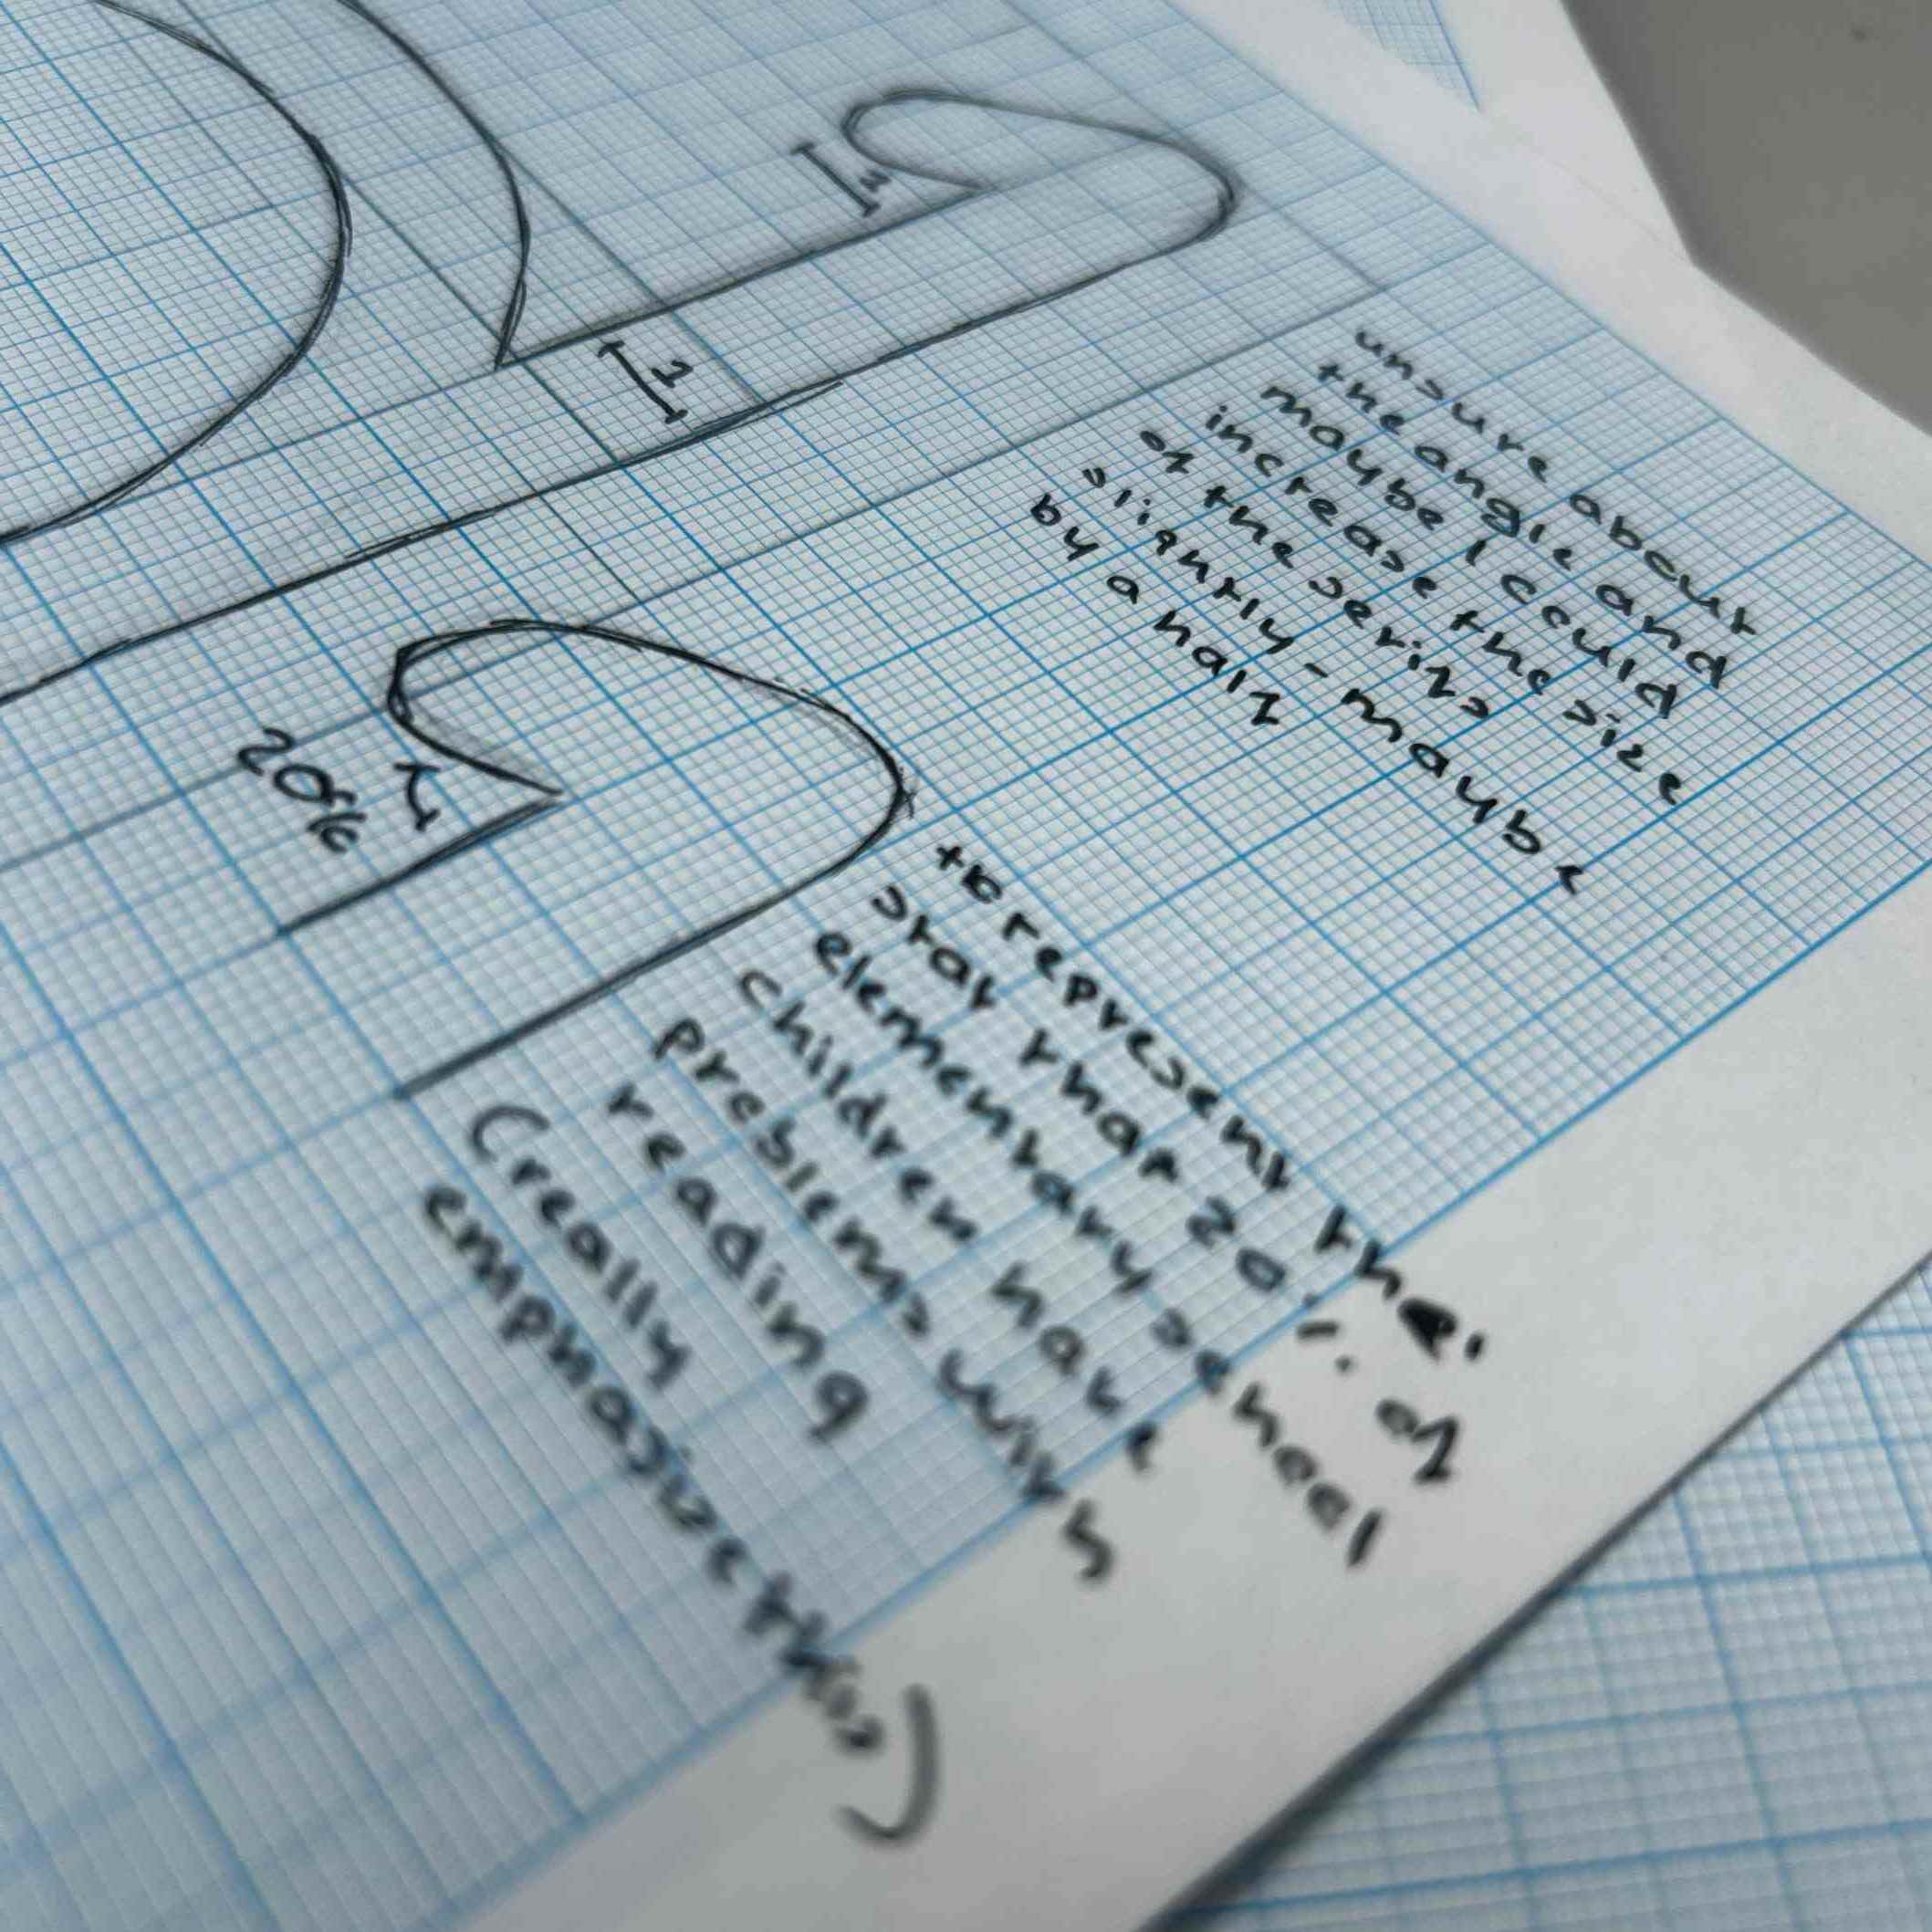 unsure about
the angle and
maybe I could
increase the size
of the serifs
slightly - maybe
by a half
1
20%
to represent the
stat that 20% of
elementary school
children have
problems with
reading
(really
emphasize this)